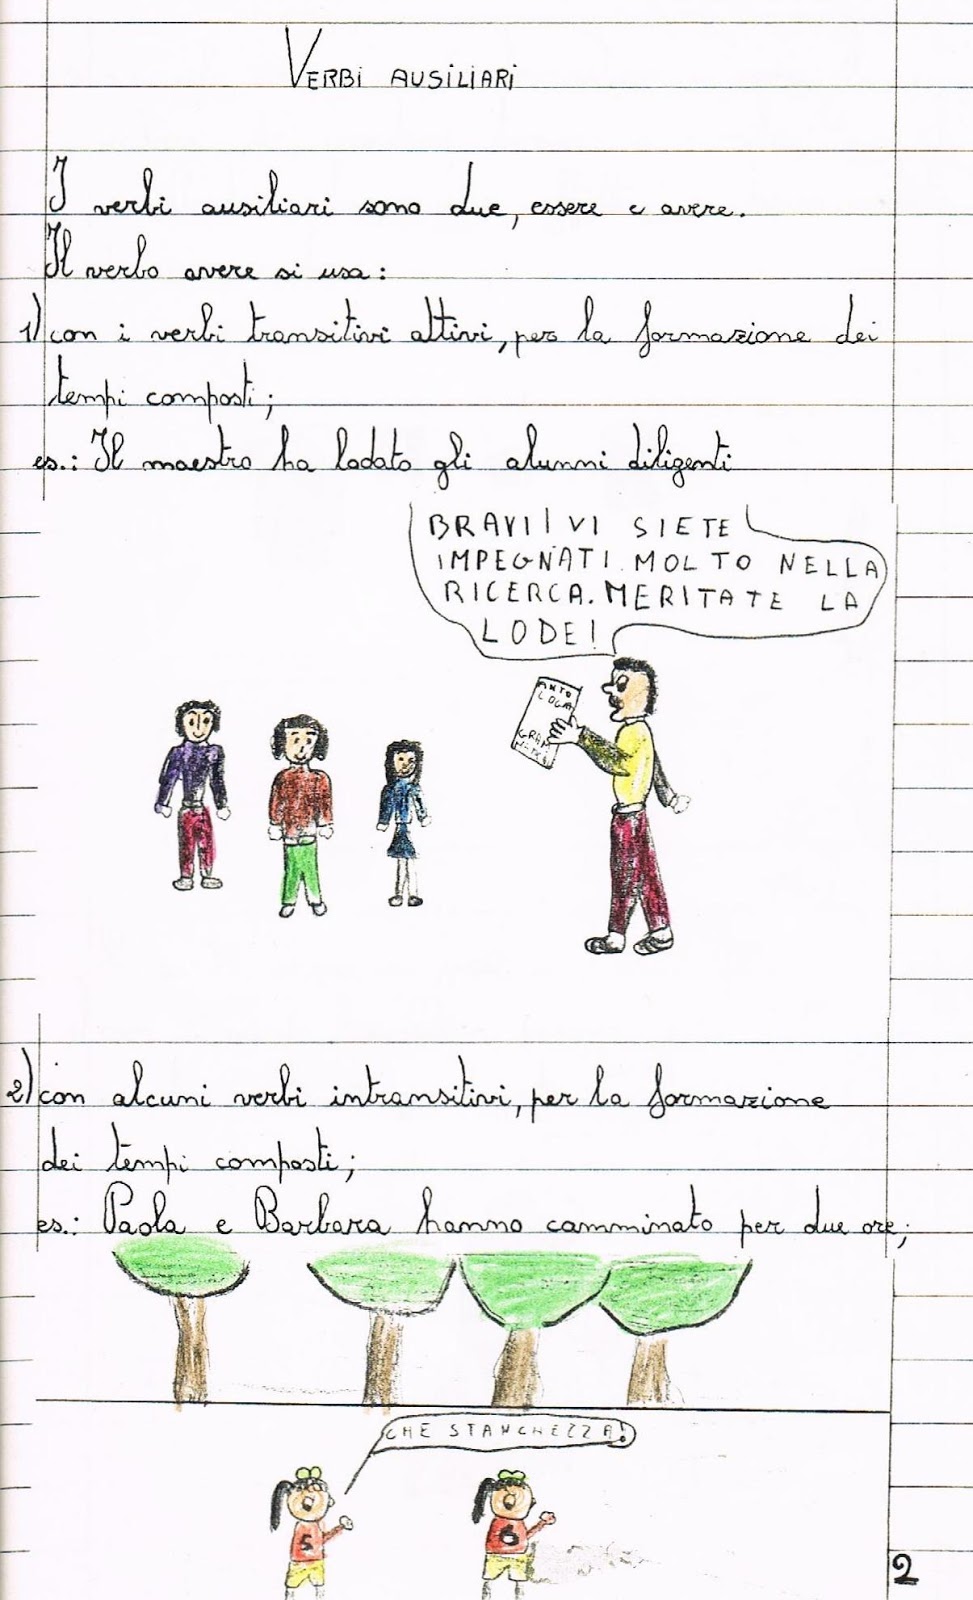 VERBI AUSILIARI
I verbi ausiliari sono due, essere e avere.
Il verbo avere si usa:
1) con i verbi transitivi attivi, per la formazione dei
tempi composti;
es.: Il maestro ha lodato gli alunni diligenti
BRAVI! VI SIETE
IMPEGNATI MOLTO NELLA
RICERCA. MERITATE LA
LODE!
ANTO
LOGIA
GRAM
2) con alcuni verbi intransitivi, per la formazione
dei tempi composti;
es.: Paola e Barbara hanno camminato per due ore;
CHE STANCHEZZA!
5
6
2